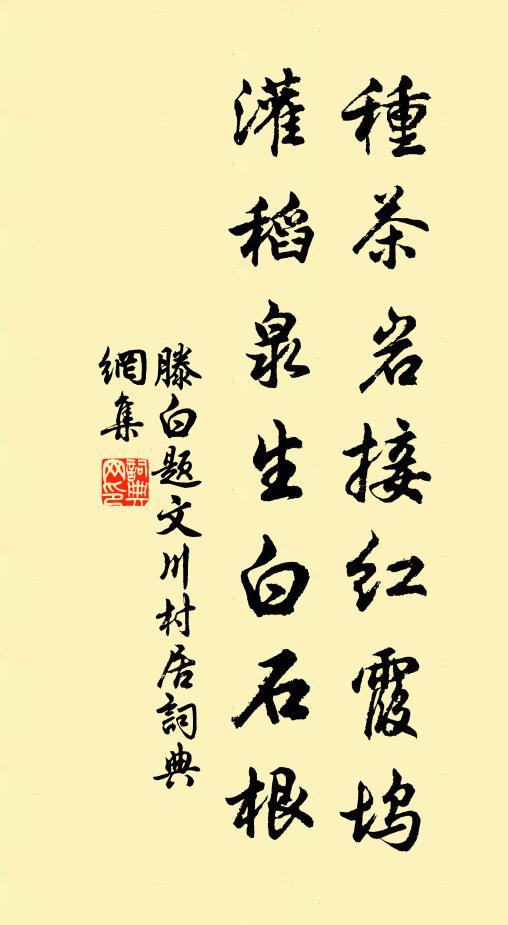 種茶岩接紅霞塢
灌稻泉生白石根
滕白题文川村居詞典
網集
詞典
网印